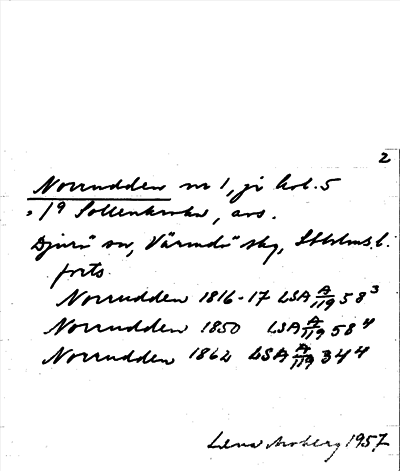 2
Norrudden nr 1, jr kol. 5
, 19 Sollenkroka, avs.
Djurö sn, Värmdö skg, Sthlms l.
forts.
Norrudden 1816-17 LSA A/119 58³
Norrudden 1850 LSA A/119 58⁴
Norrudden 1862 LSA A/119 344
Lena Moberg 1957